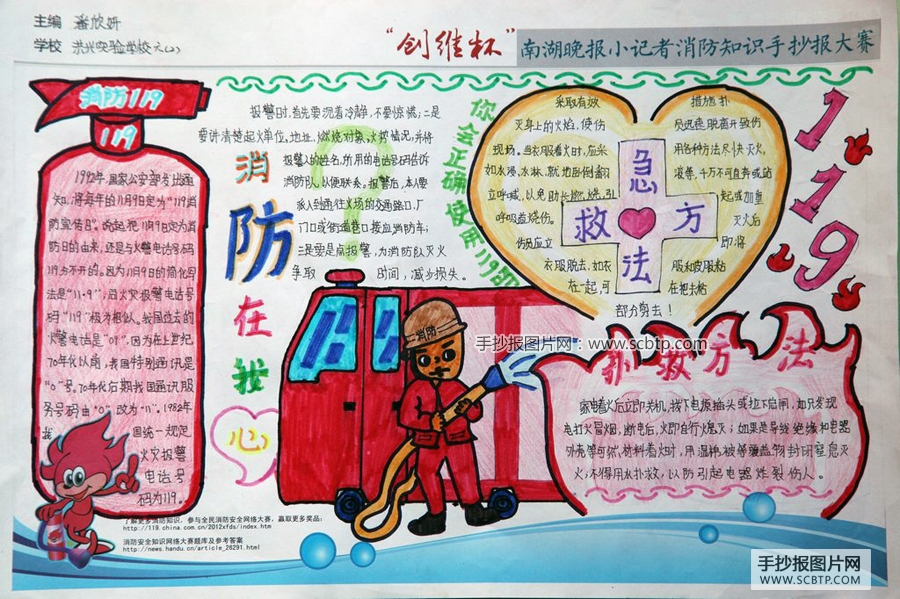 主编 潘欣妍
学校 洪兴实验学校六(2)
“创维杯”
南湖晚报小记者消防知识手抄报大赛
消防119
119
1992年,国家公安部发出通
知,将每年的11月9日定为“119消
防宣传日”。说起把11月9日定为消
防日的由来,还是与火警电话号码
119分不开的。因为11月9日的简化写
法是“11·9”,与火灾报警电话号
码“119”极为相似。我国过去的
火警电话是“09”。因为在上世纪
70年代以前,我国特别通讯是
“0”号。70年代后期我国通讯服
务号码由“0”改为“11”。1982年
我国统一规定
火灾报警
电话号
码为119。
报警时,首先要沉着冷静,不要惊慌;二是
要讲清楚起火单位、地址、燃烧对象、火势情况,并将
报警人的姓名、所用的电话号码告诉
消防队,以便联系。报警后,本人要
派人到通往火场的交通路口、厂
门口或街道巷口接应消防车;
三是要早点报警,为消防队灭火
争取 时间,减少损失。
消防在我心
你会正确使用119吗
急救方法
采取有效 措施扑
灭身上的火焰,使伤 员迅速脱离开致伤
现场。当衣服着火时,应采 用各种方法尽快灭火,
如水浸、水淋、就地卧倒翻 滚等,千万不可直奔或站
立呼喊,以免助长燃烧,引 起或加重
呼吸道烧伤。 灭火后
伤员应立 即将
衣服脱去,如衣 服和皮肤粘
在一起,可 在 把未粘
部分剪去!
119
消防
手抄报图片网:www.scbtp.com
扑救方法
家电着火后立即关机,拔下电源插头或拉下总闸,如只发现
电打火冒烟,断电后,火即自行熄灭;如果是导线绝缘和电器
外壳等可燃材料着火时,用湿棉被等覆盖物封闭窒息灭
火,不得用水扑救,以防引起电器炸裂伤人。
了解更多消防知识,参与全民消防安全网络大赛,赢取更多奖品:
http://119.china.com.cn/2012xfds/index.htm
消防安全知识网络大赛题库及参考答案
http://news.handu.cn/article_26291.html
手抄报图片网
WWW.SCBTP.COM